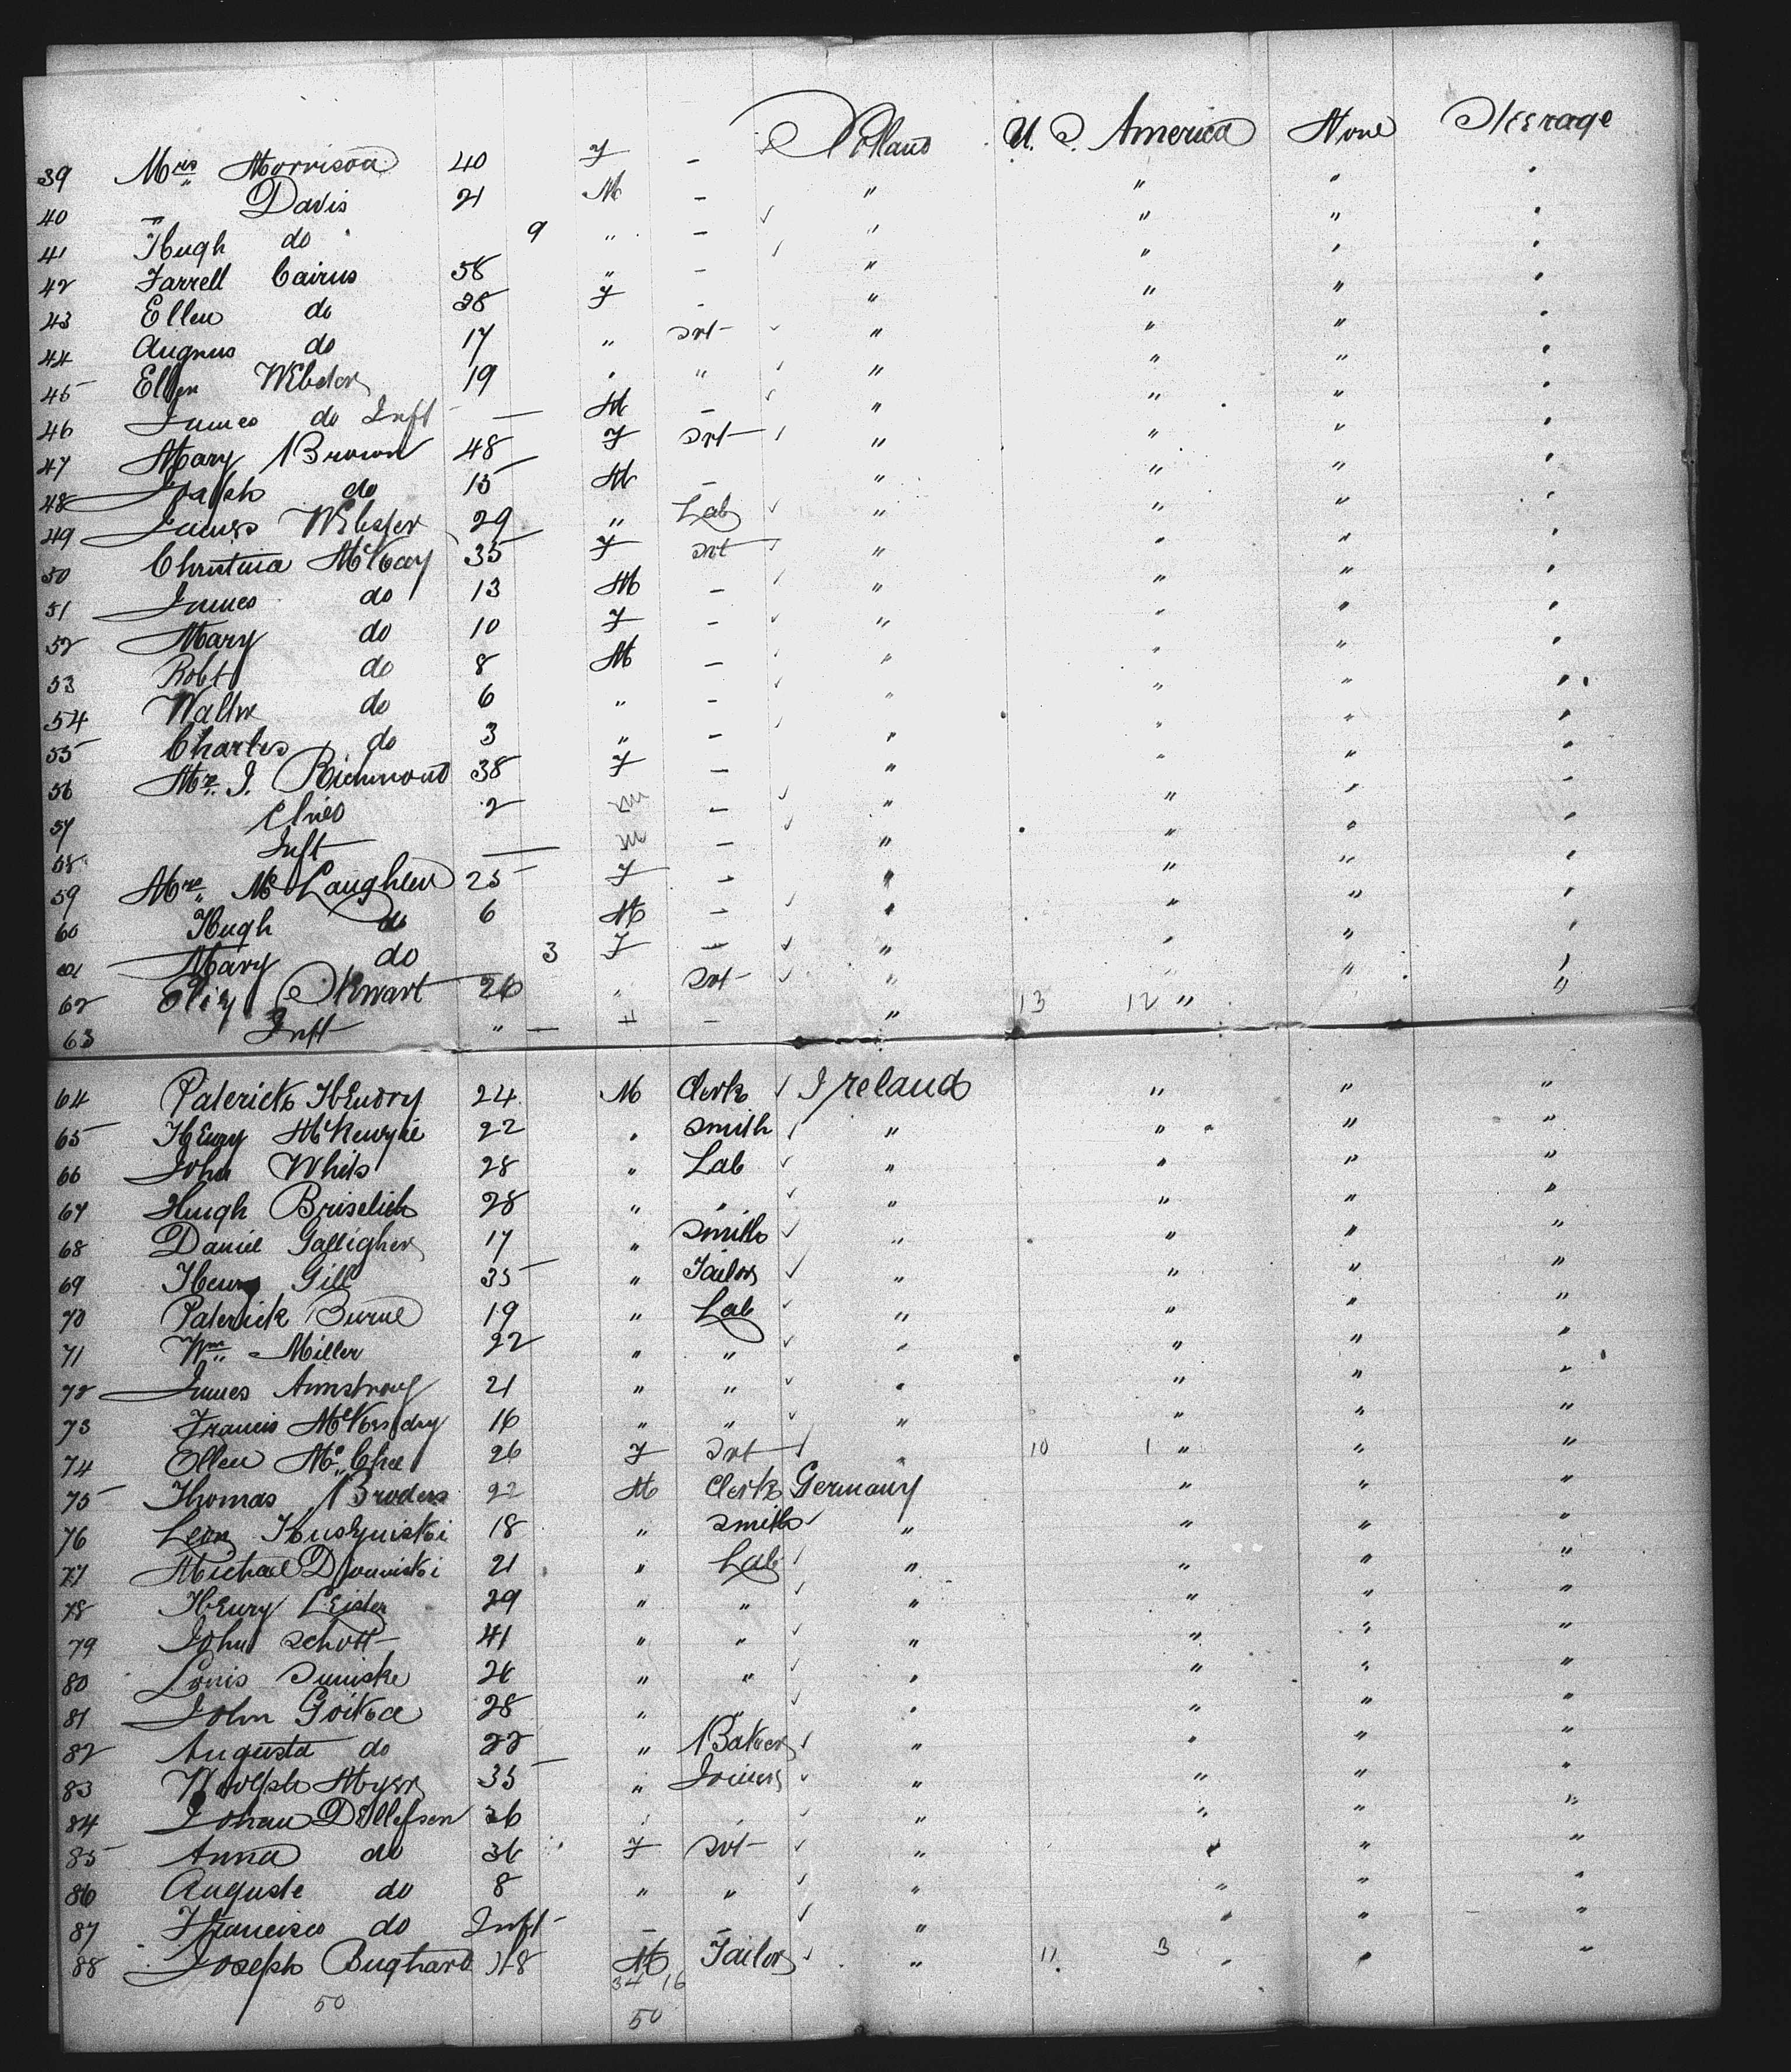 39 Mrs Morrison 40 F - Scotland U. S. America None Steerage
40 " Davis 21 M - " " " "
41 Hugh do 9 " - " " " "
42 Farrell Cairns 58 " - " " " "
43 Ellen do 38 F - " " " "
44 do 17 " Svt " " " "
45 Ellen Webster 19 " " " " " "
46 James do Inft — M - " " " "
47 Mary Brown 48 F Svt " " " "
48 Joseph do 15 M - " " " "
49 James Webster 29 " Lab " " " "
50 Christina McKay 35 F Svt " " " "
51 James do 13 M - " " " "
52 Mary do 10 F - " " " "
53 Robt do 8 M - " " " "
54 Walter do 6 " - " " " "
55 Charles do 3 " - " " " "
56 Mrs J. Richmond 38 F - " " " "
57 2 m - " " " "
58 Inft — m - " " " "
59 Mrs McLaughlen 25 F - " " " "
60 Hugh do 6 M - " " " "
61 Mary do 3 F - " " " "
62 Eliz Stewart 26 " Svt " " " "
63 Inft " — " - " 13 12 " " "
64 Paterick Hendry 24 M Clerk Ireland " " "
65 Henry 22 " Smith " " " "
66 John White 28 " Lab " " " "
67 Hugh 28 " " " " " "
68 Daniel Galligher 17 " Smith " " " "
69 Henry Gill 35 " Tailor " " " "
70 Paterick Burne 19 " Lab " " " "
71 Wm Miller 22 " " " " " "
72 James Armstrong 21 " " " " " "
73 Francis 16 " " " " " "
74 Ellen 26 F Svt " 10 1 " " "
75 Thomas Broders 22 M Clerk Germany " " "
76 Leon 18 " Smith " " " "
77 Michael 21 " Lab " " " "
78 Henry Leister 29 " " " " " "
79 John Schott 41 " " " " " "
80 Louis 26 " " " " " "
81 John 28 " " " " " "
82 Augusta do 22 " Baker " " " "
83 35 " Joiner " " " "
84 Johan Dellefsen 36 " " " " " "
85 Anna do 36 F Svt " " " "
86 Auguste do 8 " " " " " "
87 Francisco do Inft - - " " " "
88 Joseph Bughard 48 M Tailor " 11 3 " " "
34 16
50 50